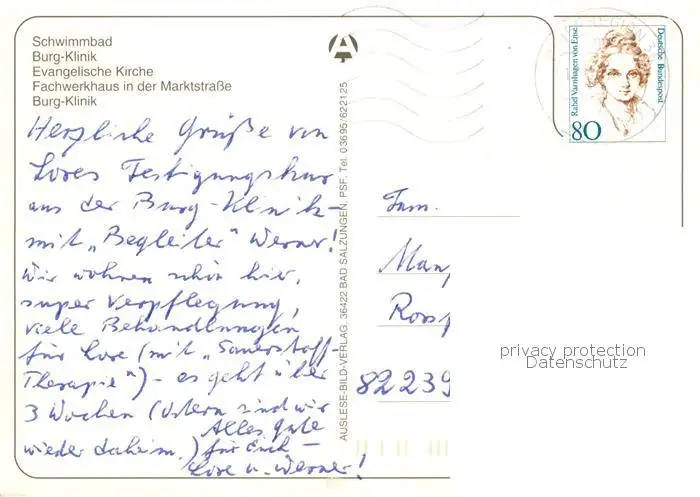 Schwimmbad
Burg-Klinik
Evangelische Kirche
Fachwerkhaus in der Marktstraße
Burg-Klinik
Herzliche Grüße von
Lores Festigungskur
aus der Burg-Klinik -
mit „Begleiter" Werner!
Wir wohnen schön hier,
super Verpflegung,
viele Behandlungen
für Lore (mit „Sauerstoff-
Therapie") - es geht über
3 Wochen (Ostern sind wir
wieder daheim.)
Alles Gute
für Euch -
Lore u. Werner!
AUSLESE-BILD-VERLAG, 36422 BAD SALZUNGEN, PSF. Tel. 03695/622125
Rahel Varnhagen von Ense
Deutsche Bundespost
80
Fam.
Man
Ross
82239
privacy protection
Datenschutz